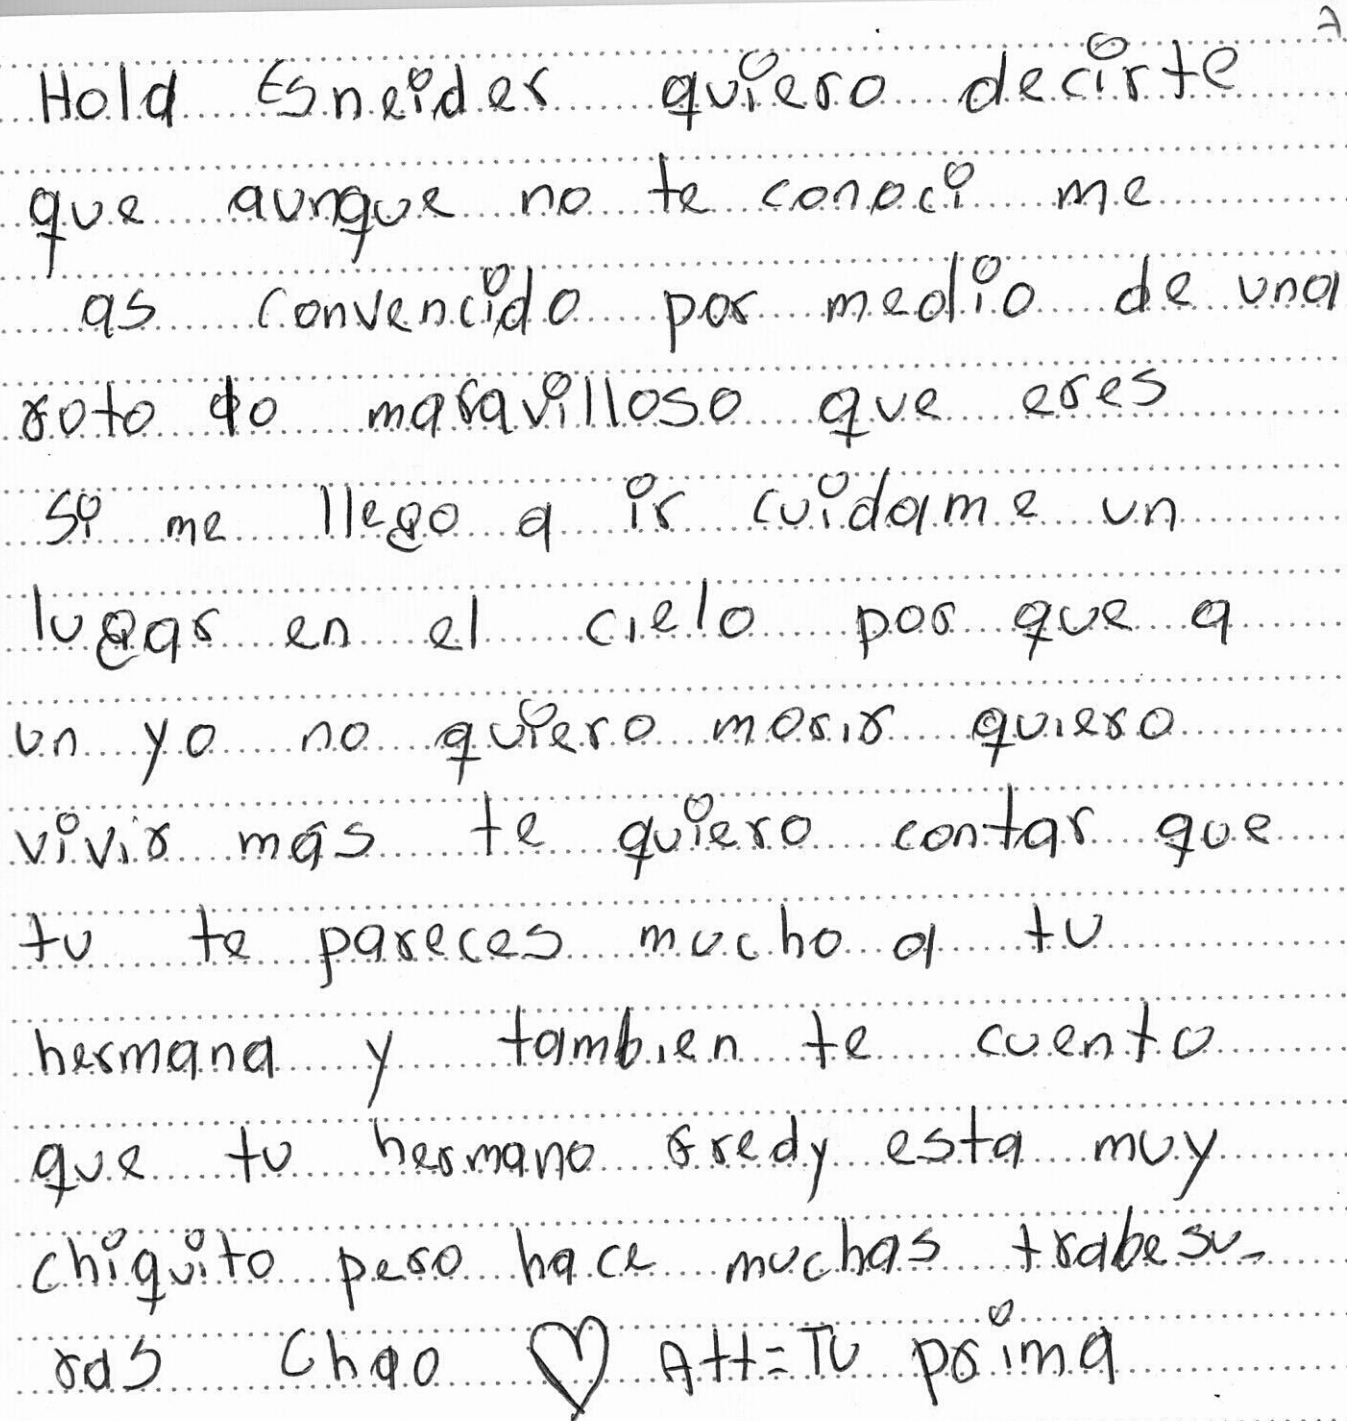 7
Hola Esneider quiero decirte
que aunque no te conoci me
as convencido por medio de una
roto do maravilloso que eres
Si me llego a ir cuidame un
lugar en el cielo por que a
un yo no quiero morir quiero
vivir más te quiero contar que
tu te pareces mucho a tu
hermana y tambien te cuento
que tu hermano fredy esta muy
chiquito pero hace muchas trabesu-
ras Chao ♡ Att=Tu prima